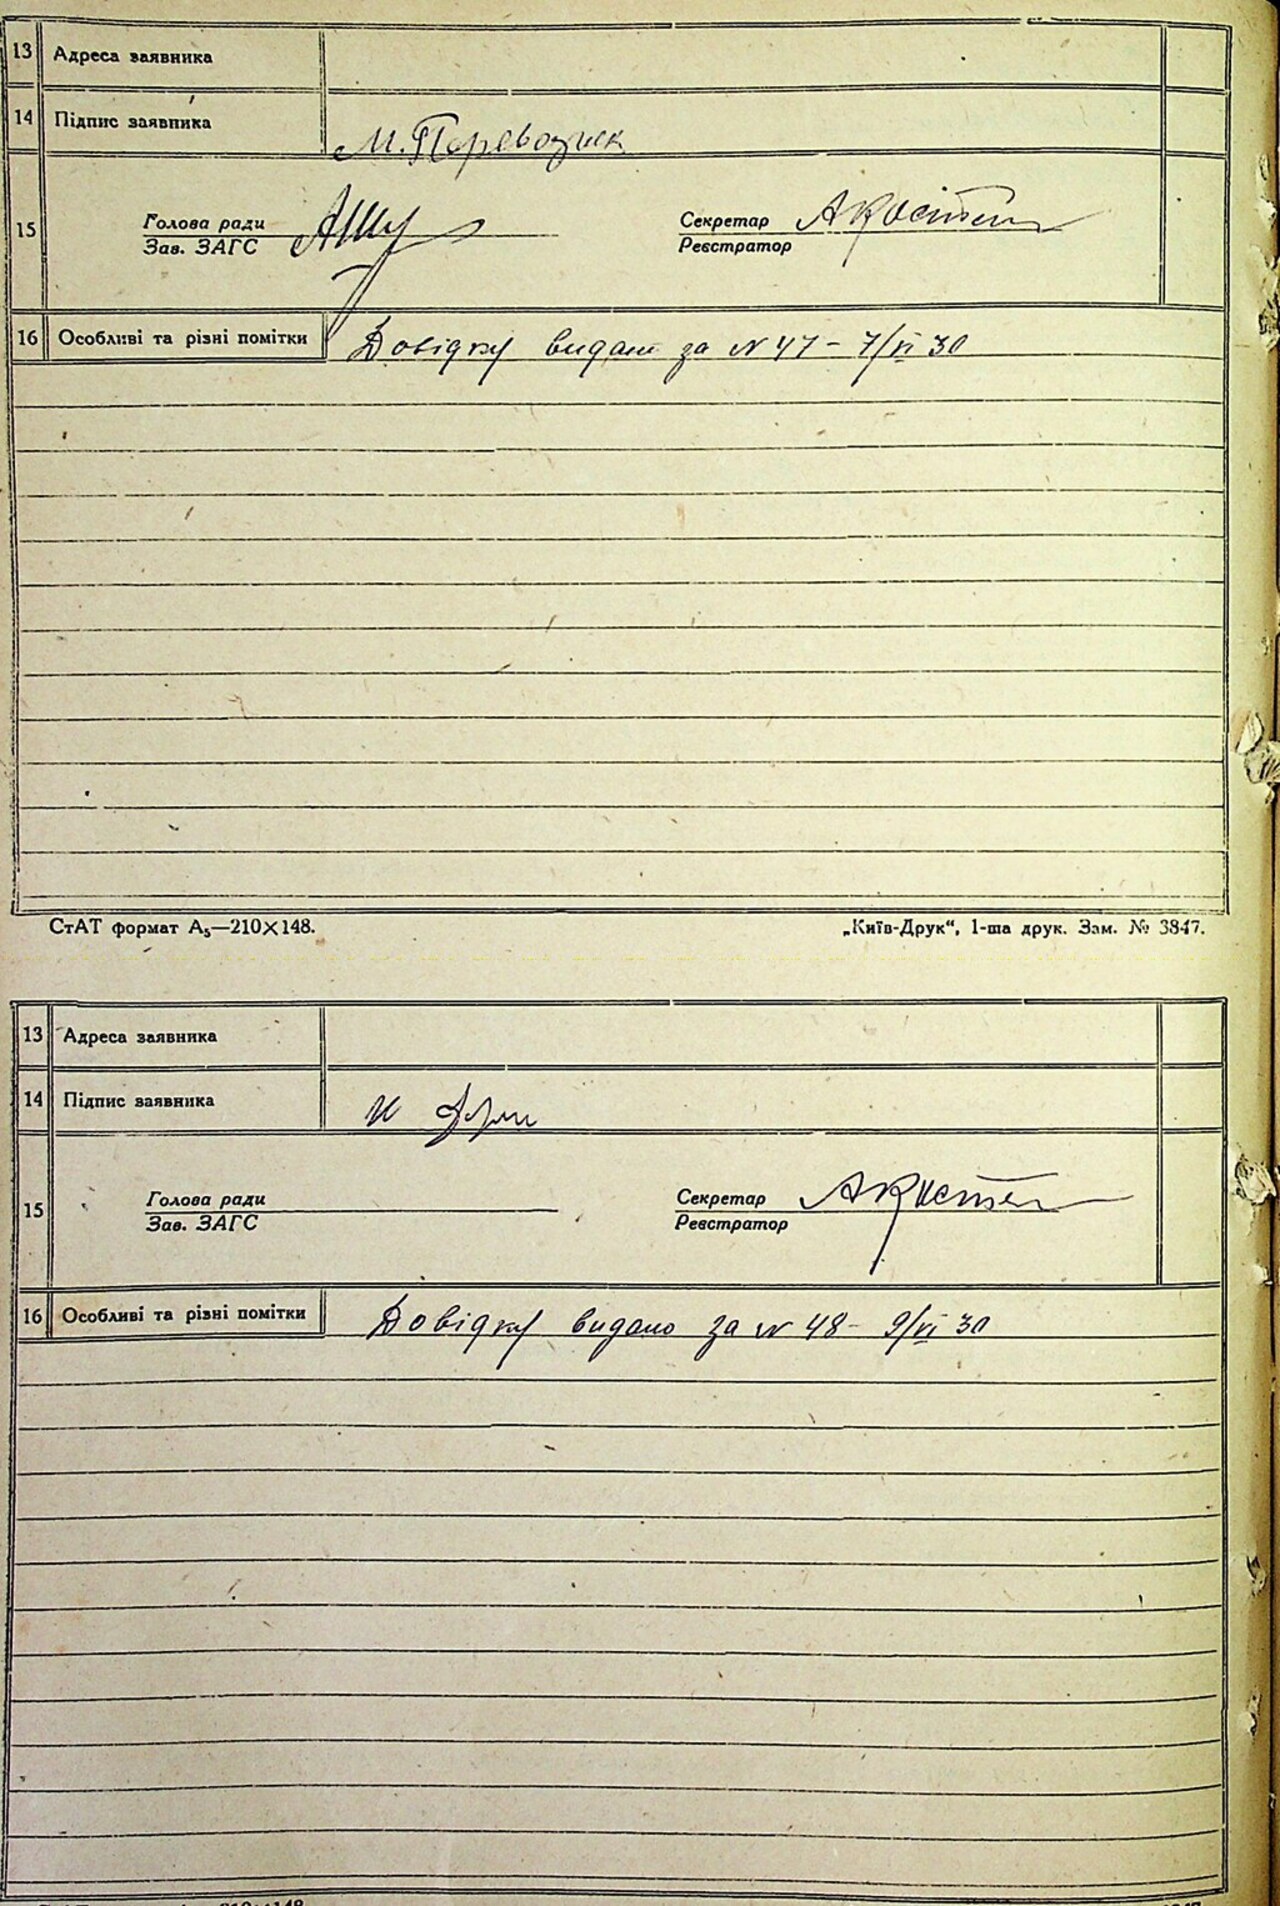 13 Адреса заявника
14 Підпис заявника М. Перевозник
15 Голова ради Секретар
Зав. ЗАГС Реєстратор
16 Особливі та різні помітки Довідку видано за N 47 - 7/VI 30
СтАТ формат А₅—210×148. „Київ-Друк“, 1-ша друк. Зам. № 3847.
13 Адреса заявника
14 Підпис заявника
15 Голова ради Секретар
Зав. ЗАГС Реєстратор
16 Особливі та різні помітки Довідку видано за N 48 - 9/VI 30